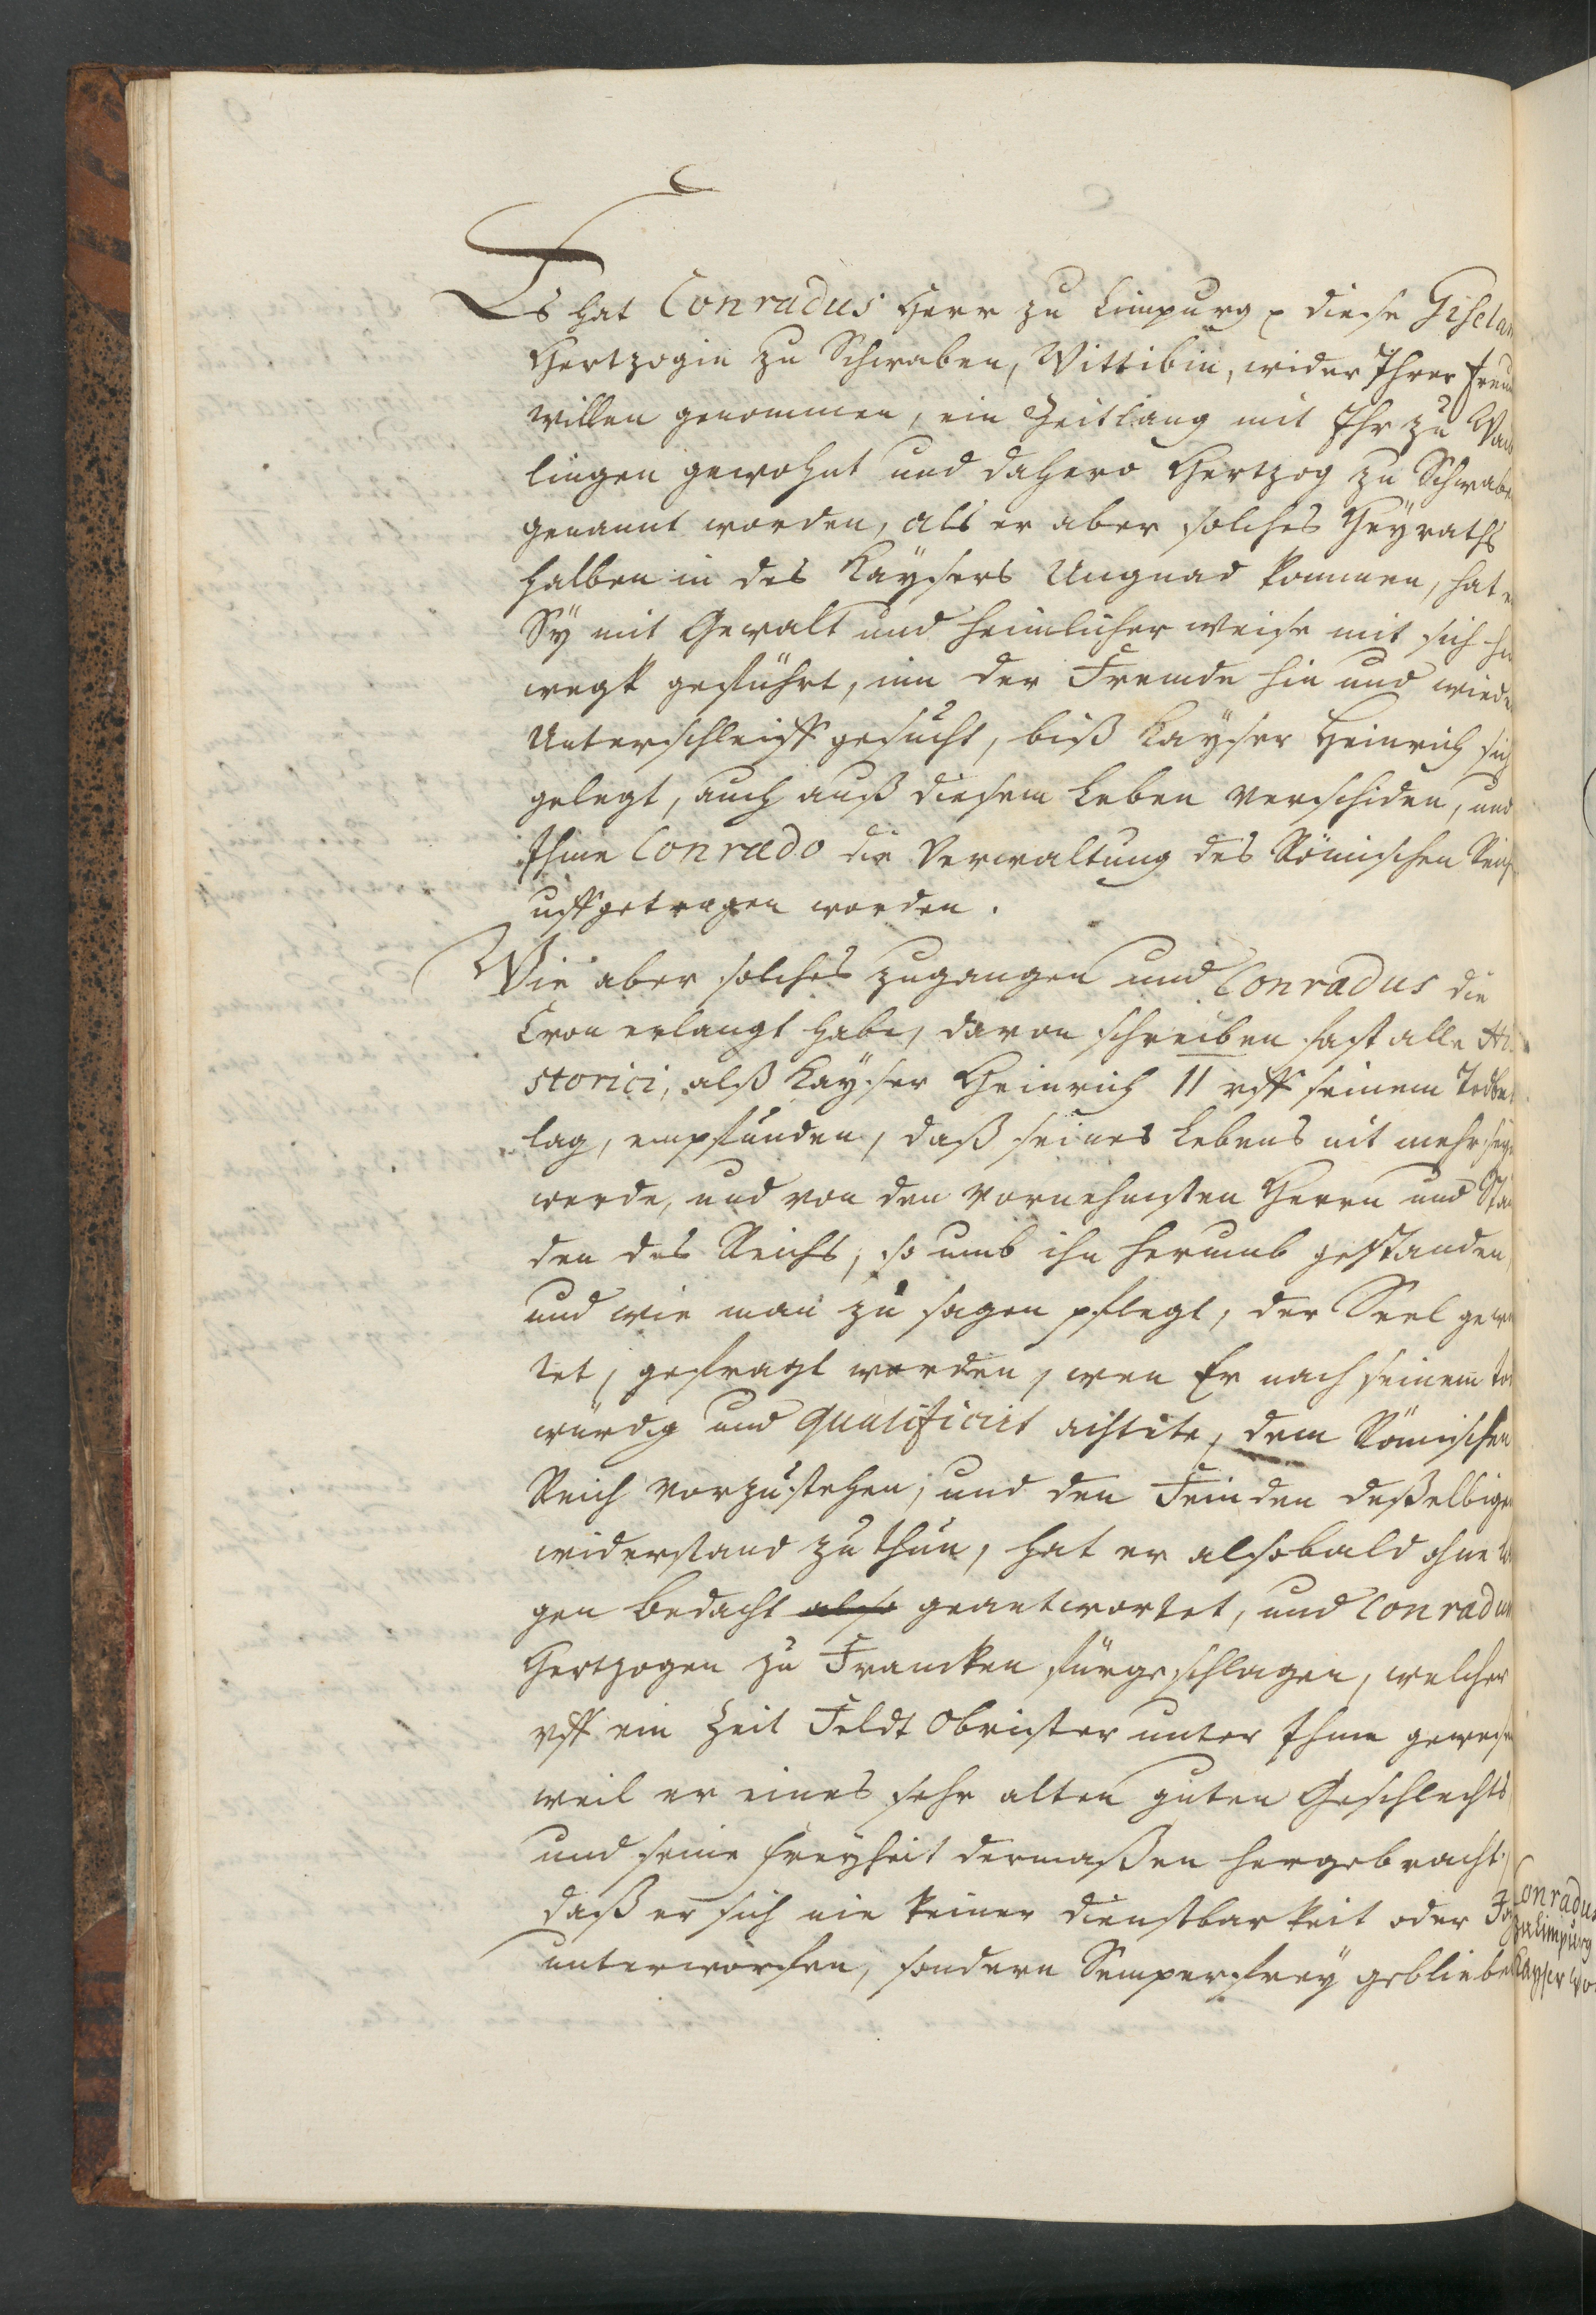 Es hat Conradus Herr zu Limpurg diese Giselam
Hertzogin zu Schwaben, Wittibin, wider Ihrer Freund
willen genommen, ein Zeitlang mit Ihr zu Wai
lingen gewohnt und dahero Hertzog zu Schwaben
genannt worden, als er aber solches Heyraths
halben in des Kaysers Ungnad kommen, hat er
Sy mit Gewalt und heimlicher weise mit sich hin
wegk geführt, inn der Fremde hin und wieder
Unterschleiff gesucht, biß Kayser Heinrich sich
gelegt, auch auß diesem Leben verschiden, und
Ihme Conrado die Verwaltung des Römischen Reichs
uffgetragen worden.
Wie aber solches zugangen und Conradus die
Cron erlangt habe, davon schreiben fast alle Hi-
storici, alß Kayser Heinrich II uff seinem Todbett
lag, empfunden, daß seines Lebens nit mehr seyn
werde, und von den vornehmsten Herrn und Stän
den des Reichs, so umb ihn herumb gestanden,
und wie man zu sagen pflegt, der Seel gewar
tet, gefragt worden, wen Er nach seinem tod
würdig und qualificirt achtete, dem Römischen
Reich vorzustehen, und den Feinden deßelbigen
widerstand zu thun, hat er alsobald ohne lan
gen bedacht also geantwortet, und Conradum
Hertzogen zu Francken fürgeschlagen, welcher
uff ein Zeit Feldt Obrister unter Ihme gewesen
weil er eines sehr alten guten Geschlechts,
und seine Freyheit dermaßen hergebracht,
daß er sich nie keiner dienstbarkeit oder
unterworfen, sondern Semperfrey geblieben
Conradus
zu Limpurg
Kayser wo